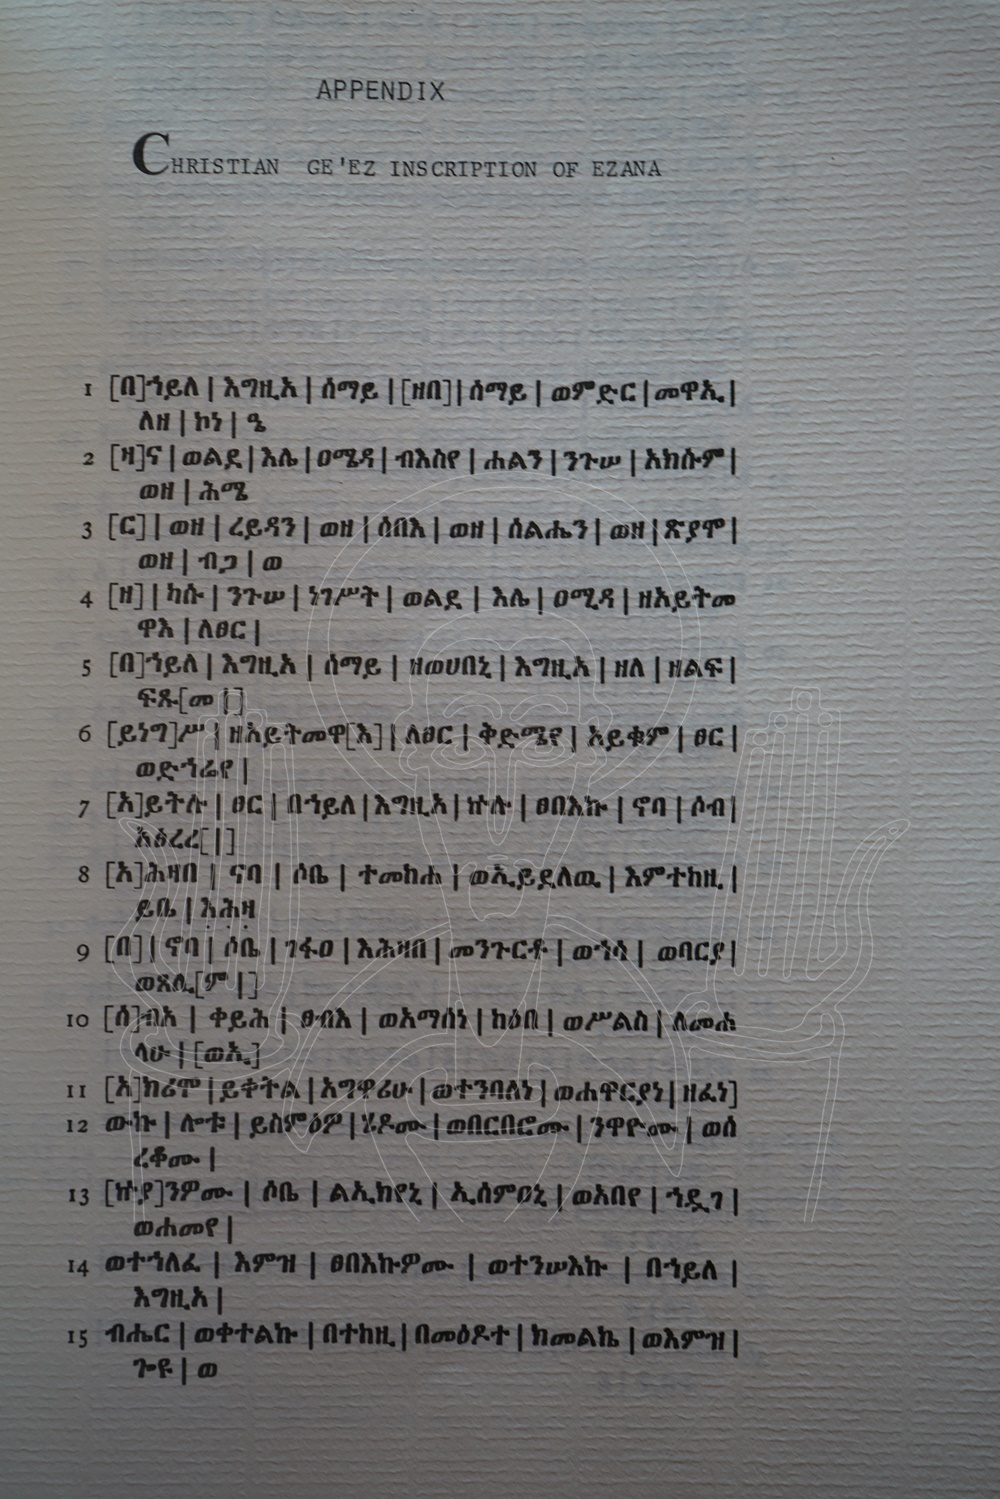 APPENDIX
CHRISTIAN GE'EZ INSCRIPTION OF EZANA
1 [በ]ኀይለ | እግዚአ | ሰማይ | [ዘበ] | ሰማይ | ወምድር | መዋኢ |
ለዘ | ኮነ | ዔ
2 [ዛ]ና | ወልደ | እሌ | ዐሜዳ | ብእስየ | ሐልን | ንጉሠ | አክሱም |
ወዘ | ሕሜ
3 [ር] | ወዘ | ረይዳን | ወዘ | ሰበእ | ወዘ | ሰልሔን | ወዘ | ጽያሞ |
ወዘ | ብጋ | ወ
4 [ዘ] | ካሱ | ንጉሠ | ነገሥት | ወልደ | እሌ | ዐሚዳ | ዘአይትመ
ዋእ | ለፀር |
5 [በ]ኀይለ | እግዚአ | ሰማይ | ዘወሀበኒ | እግዚአ | ዘለ | ዘልፍ |
ፍጹ[መ |]
6 [ይነግ]ሥ | ዘአይትመዋ[እ] | ለፀር | ቅድሜየ | አይቁም | ፀር |
ወድኅሬየ |
7 [አ]ይትሉ | ፀር | በኀይለ | እግዚአ | ኵሉ | ፀበእኩ | ኖባ | ሶብ |
አፅረረ[|]
8 [አ]ሕዛበ | ኖባ | ሶቤ | ተመከሐ | ወኢይደለዉ | እምተከዚ |
ይቤ | እሕዛ
9 [በ] | ኖባ | ሶቤ | ገፋዐ | እሕዛበ | መንጉርቶ | ወኀሳ | ወባርያ |
ወጸሊ[ም |]
10 [ሰ]ብአ | ቀይሕ | ፀብእ | ወአማሰነ | ከዕበ | ወሥልስ | ለመሐ
ላሁ | [ወኢ]
11 [አ]ክሪሞ | ይቀትል | አግዋሪሁ | ወተንባለነ | ወሐዋርያነ | ዘፈነ]
12 ውኩ | ሎቱ | ይስምዕዎ | ሄዶሙ | ወበርበሮሙ | ንዋዮሙ | ወሰ
ረቆሙ |
13 [ኵያ]ንዎሙ | ሶቤ | ልኢክየኒ | ኢሰምዐኒ | ወአበየ | ኀዲገ |
ወሐመየ |
14 ወተኀለፈ | እምዝ | ፀበእኩዎሙ | ወተንሠእኩ | በኀይለ |
እግዚአ |
15 ብሔር | ወቀተልኩ | በተከዚ | በመዕዶተ | ክመልኬ | ወእምዝ |
ጐዩ | ወ